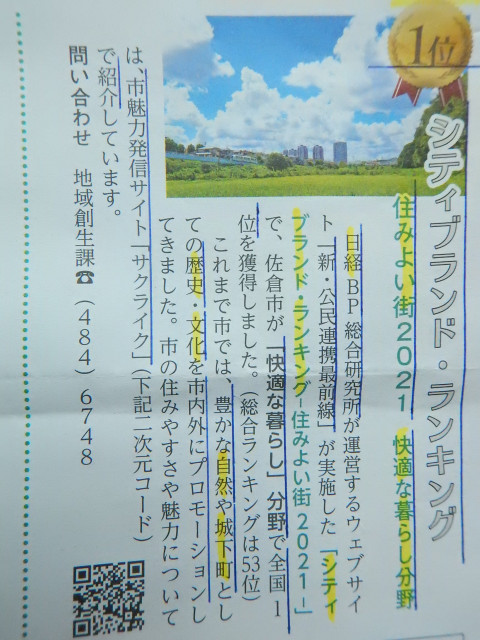 1位
シティブランド・ランキング
住みよい街2021 快適な暮らし分野
日経BP総合研究所が運営するウェブサイ
ト「新・公民連携最前線」が実施した「シティ
ブランド・ランキング-住みよい街2021-」
で、佐倉市が「快適な暮らし」分野で全国1
位を獲得しました。(総合ランキングは53位)
これまで市では、豊かな自然や城下町とし
ての歴史・文化を市内外にプロモーションし
てきました。市の住みやすさや魅力について
は、市魅力発信サイト「サクライク」(下記二次元コード)
で紹介しています。
問い合わせ 地域創生課☎(484)6748